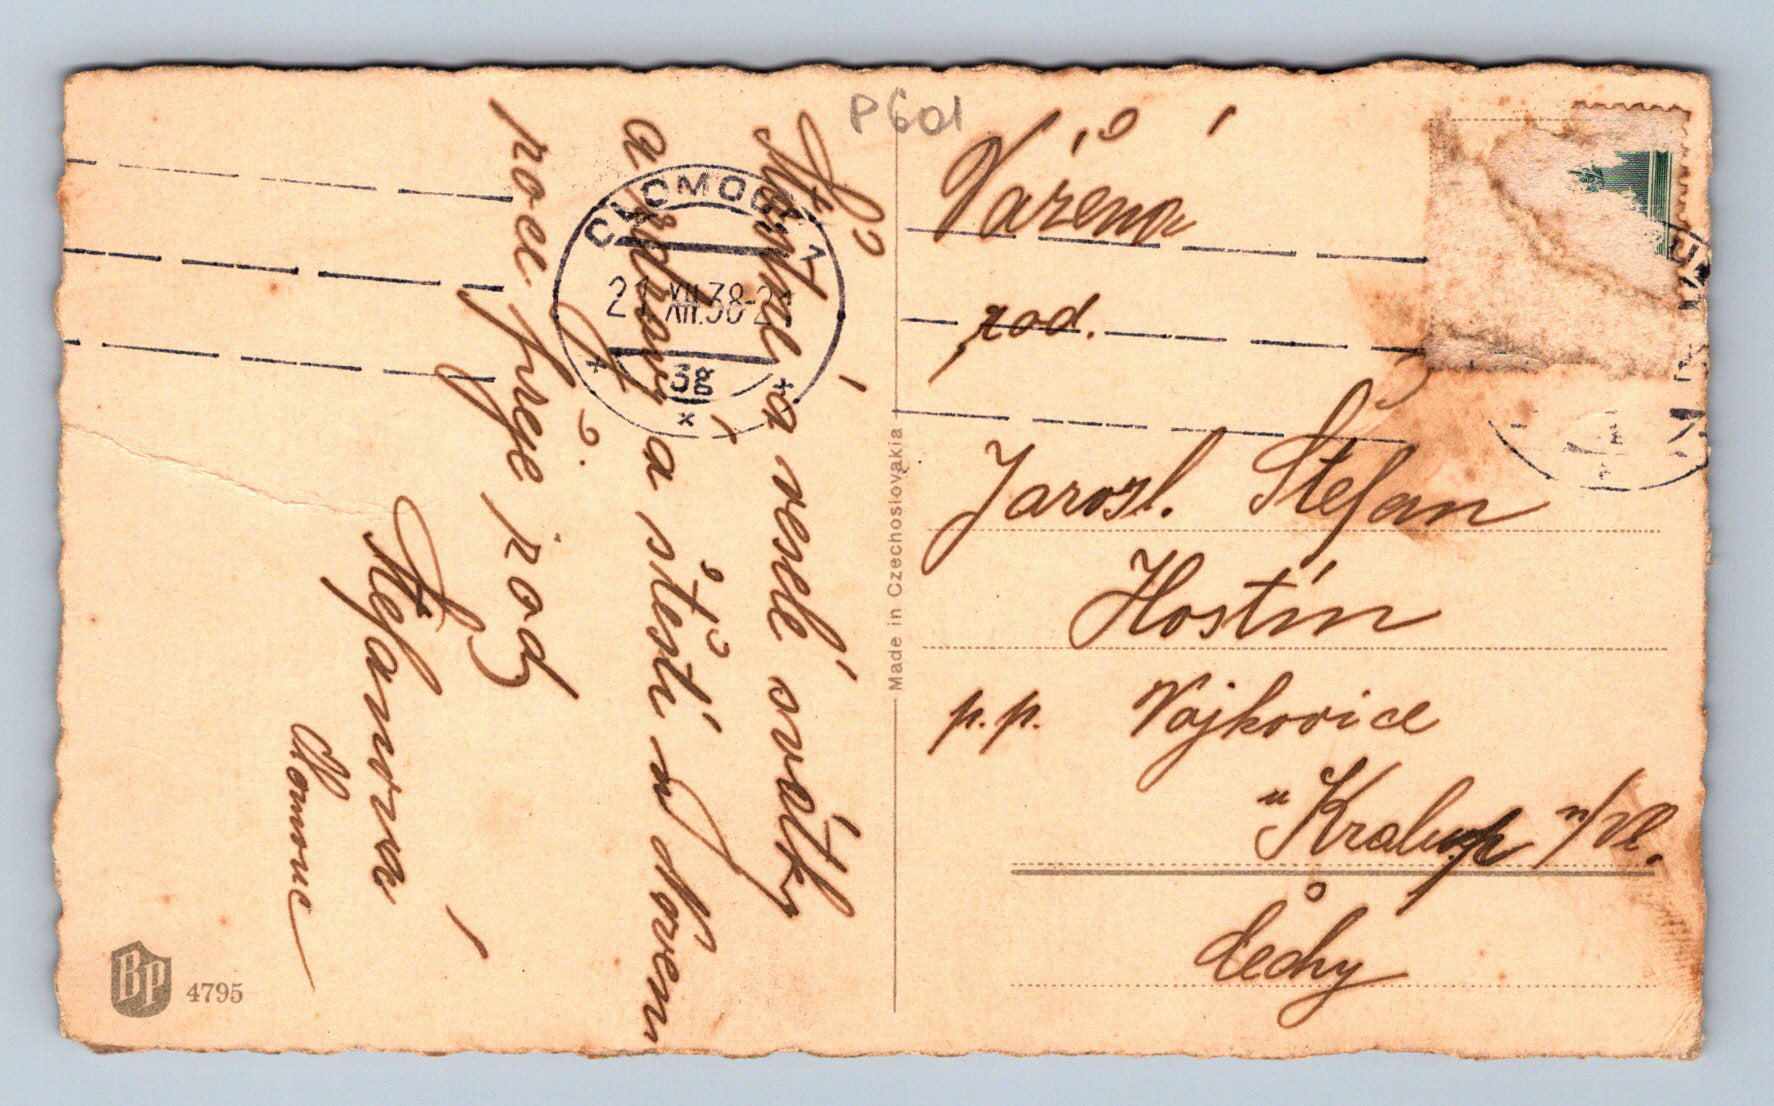 P601
Šťastné a veselé svátky
a zdraví a štěstí v Novém
roce přeje rod.
Štefanova
Olomouc
OLOMOUC 1
21.XII.38-21
3g
Made in Czechoslovakia
Vážená
rod.
Jarosl. Štefan
Hostín
p.p. Vojkovice
u Kralup n/Vl.
Čechy
BP 4795